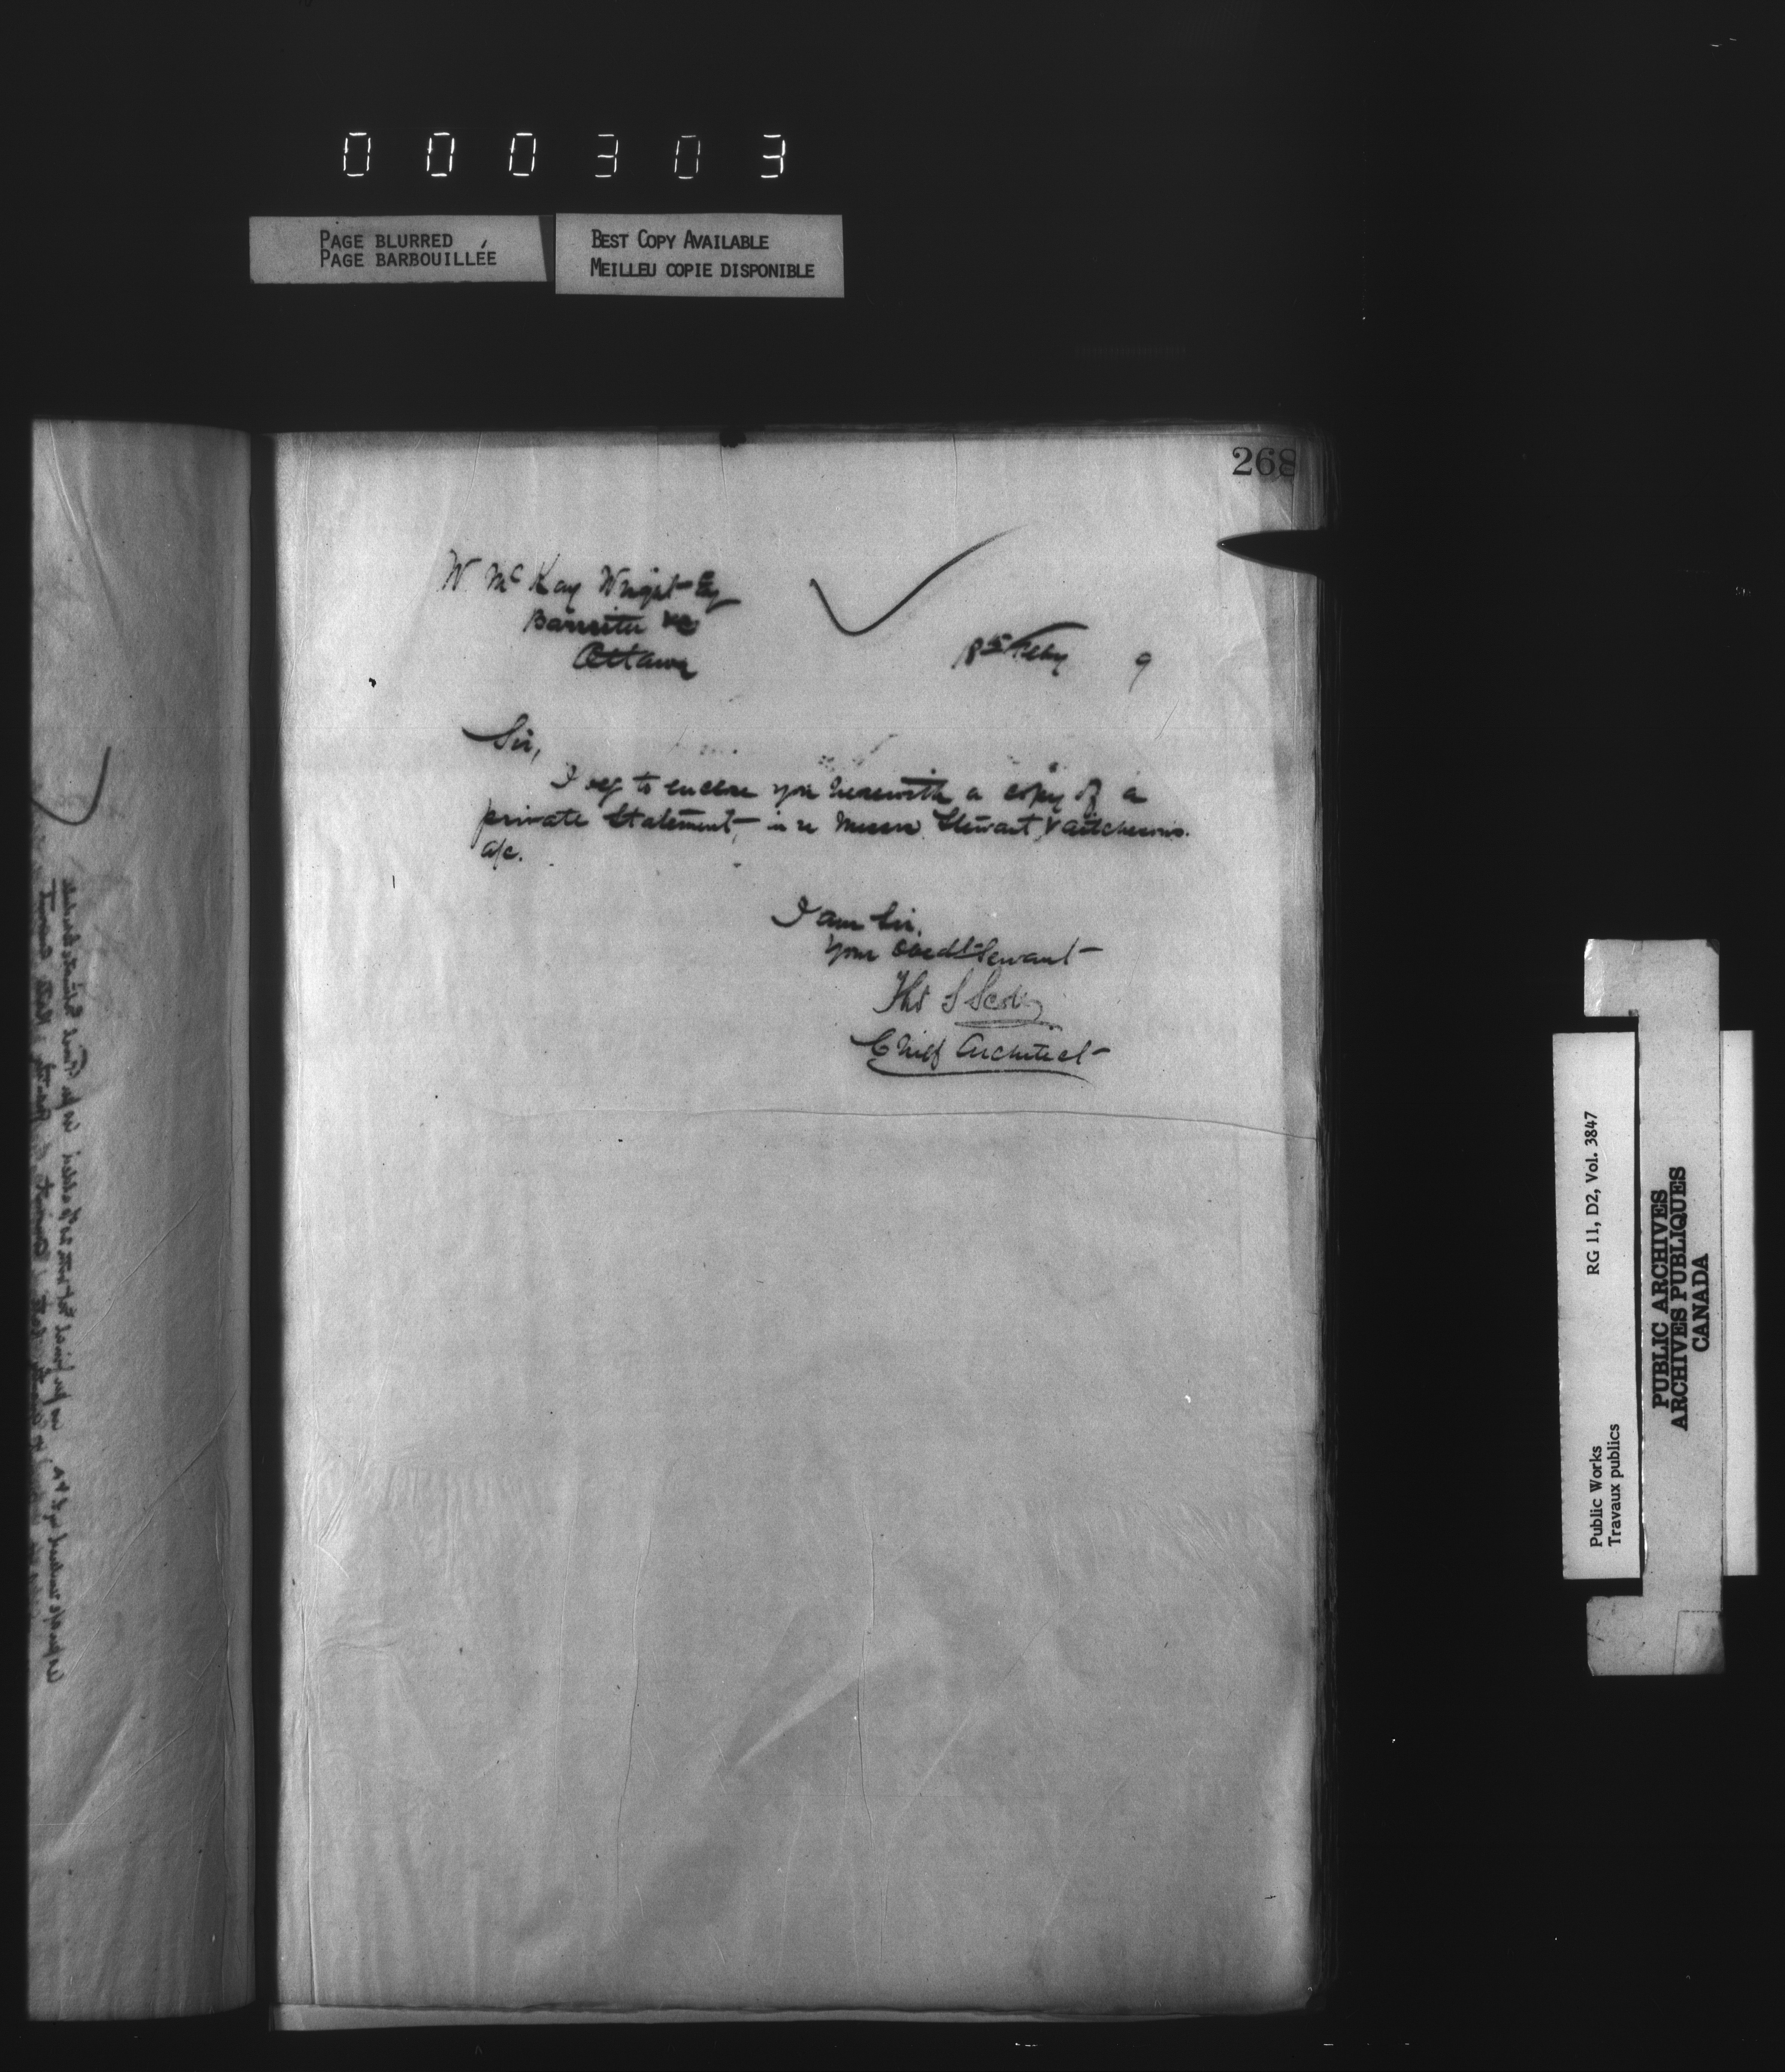 000303
PAGE BLURRED
PAGE BARBOUILLÉE
BEST COPY AVAILABLE
MEILLEU COPIE DISPONIBLE
268
W. McKay Wright Esq
Barrister &c
Ottawa
18th Feby 9
Sir,
I beg to enclose you herewith a copy of a
private Statement, in re Messrs Stewart & Aitchesons.
a/c.
I am Sir,
Your Obedt Servant
Thos S Scott
Chief Architect
Public Works
Travaux publics
RG 11, D2, Vol. 3847
PUBLIC ARCHIVES
ARCHIVES PUBLIQUES
CANADA